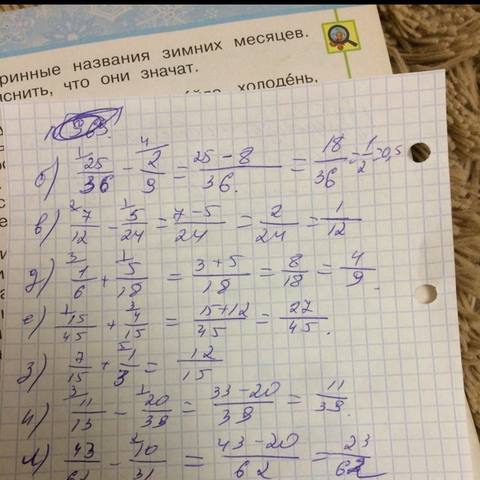 ринные названия зимних месяцев.
яснить, что они значат.
холоде́нь,
б) 25/36 - 2/9 = 25-8/36. = 18/36 = 1/2 = 0,5
в) 7/12 - 5/24 = 7-5/24 = 2/24 = 1/12
д) 1/6 + 5/18 = 3+5/18 = 8/18 = 4/9.
е) 15/45 + 4/15 = 15+12/45 = 27/45.
з) 7/15 + 1/3 = 12/15
и) 11/13 - 20/39 = 33-20/39 = 11/39.
л) 43/62 - 10/31 = 43-20/62 = 23/62